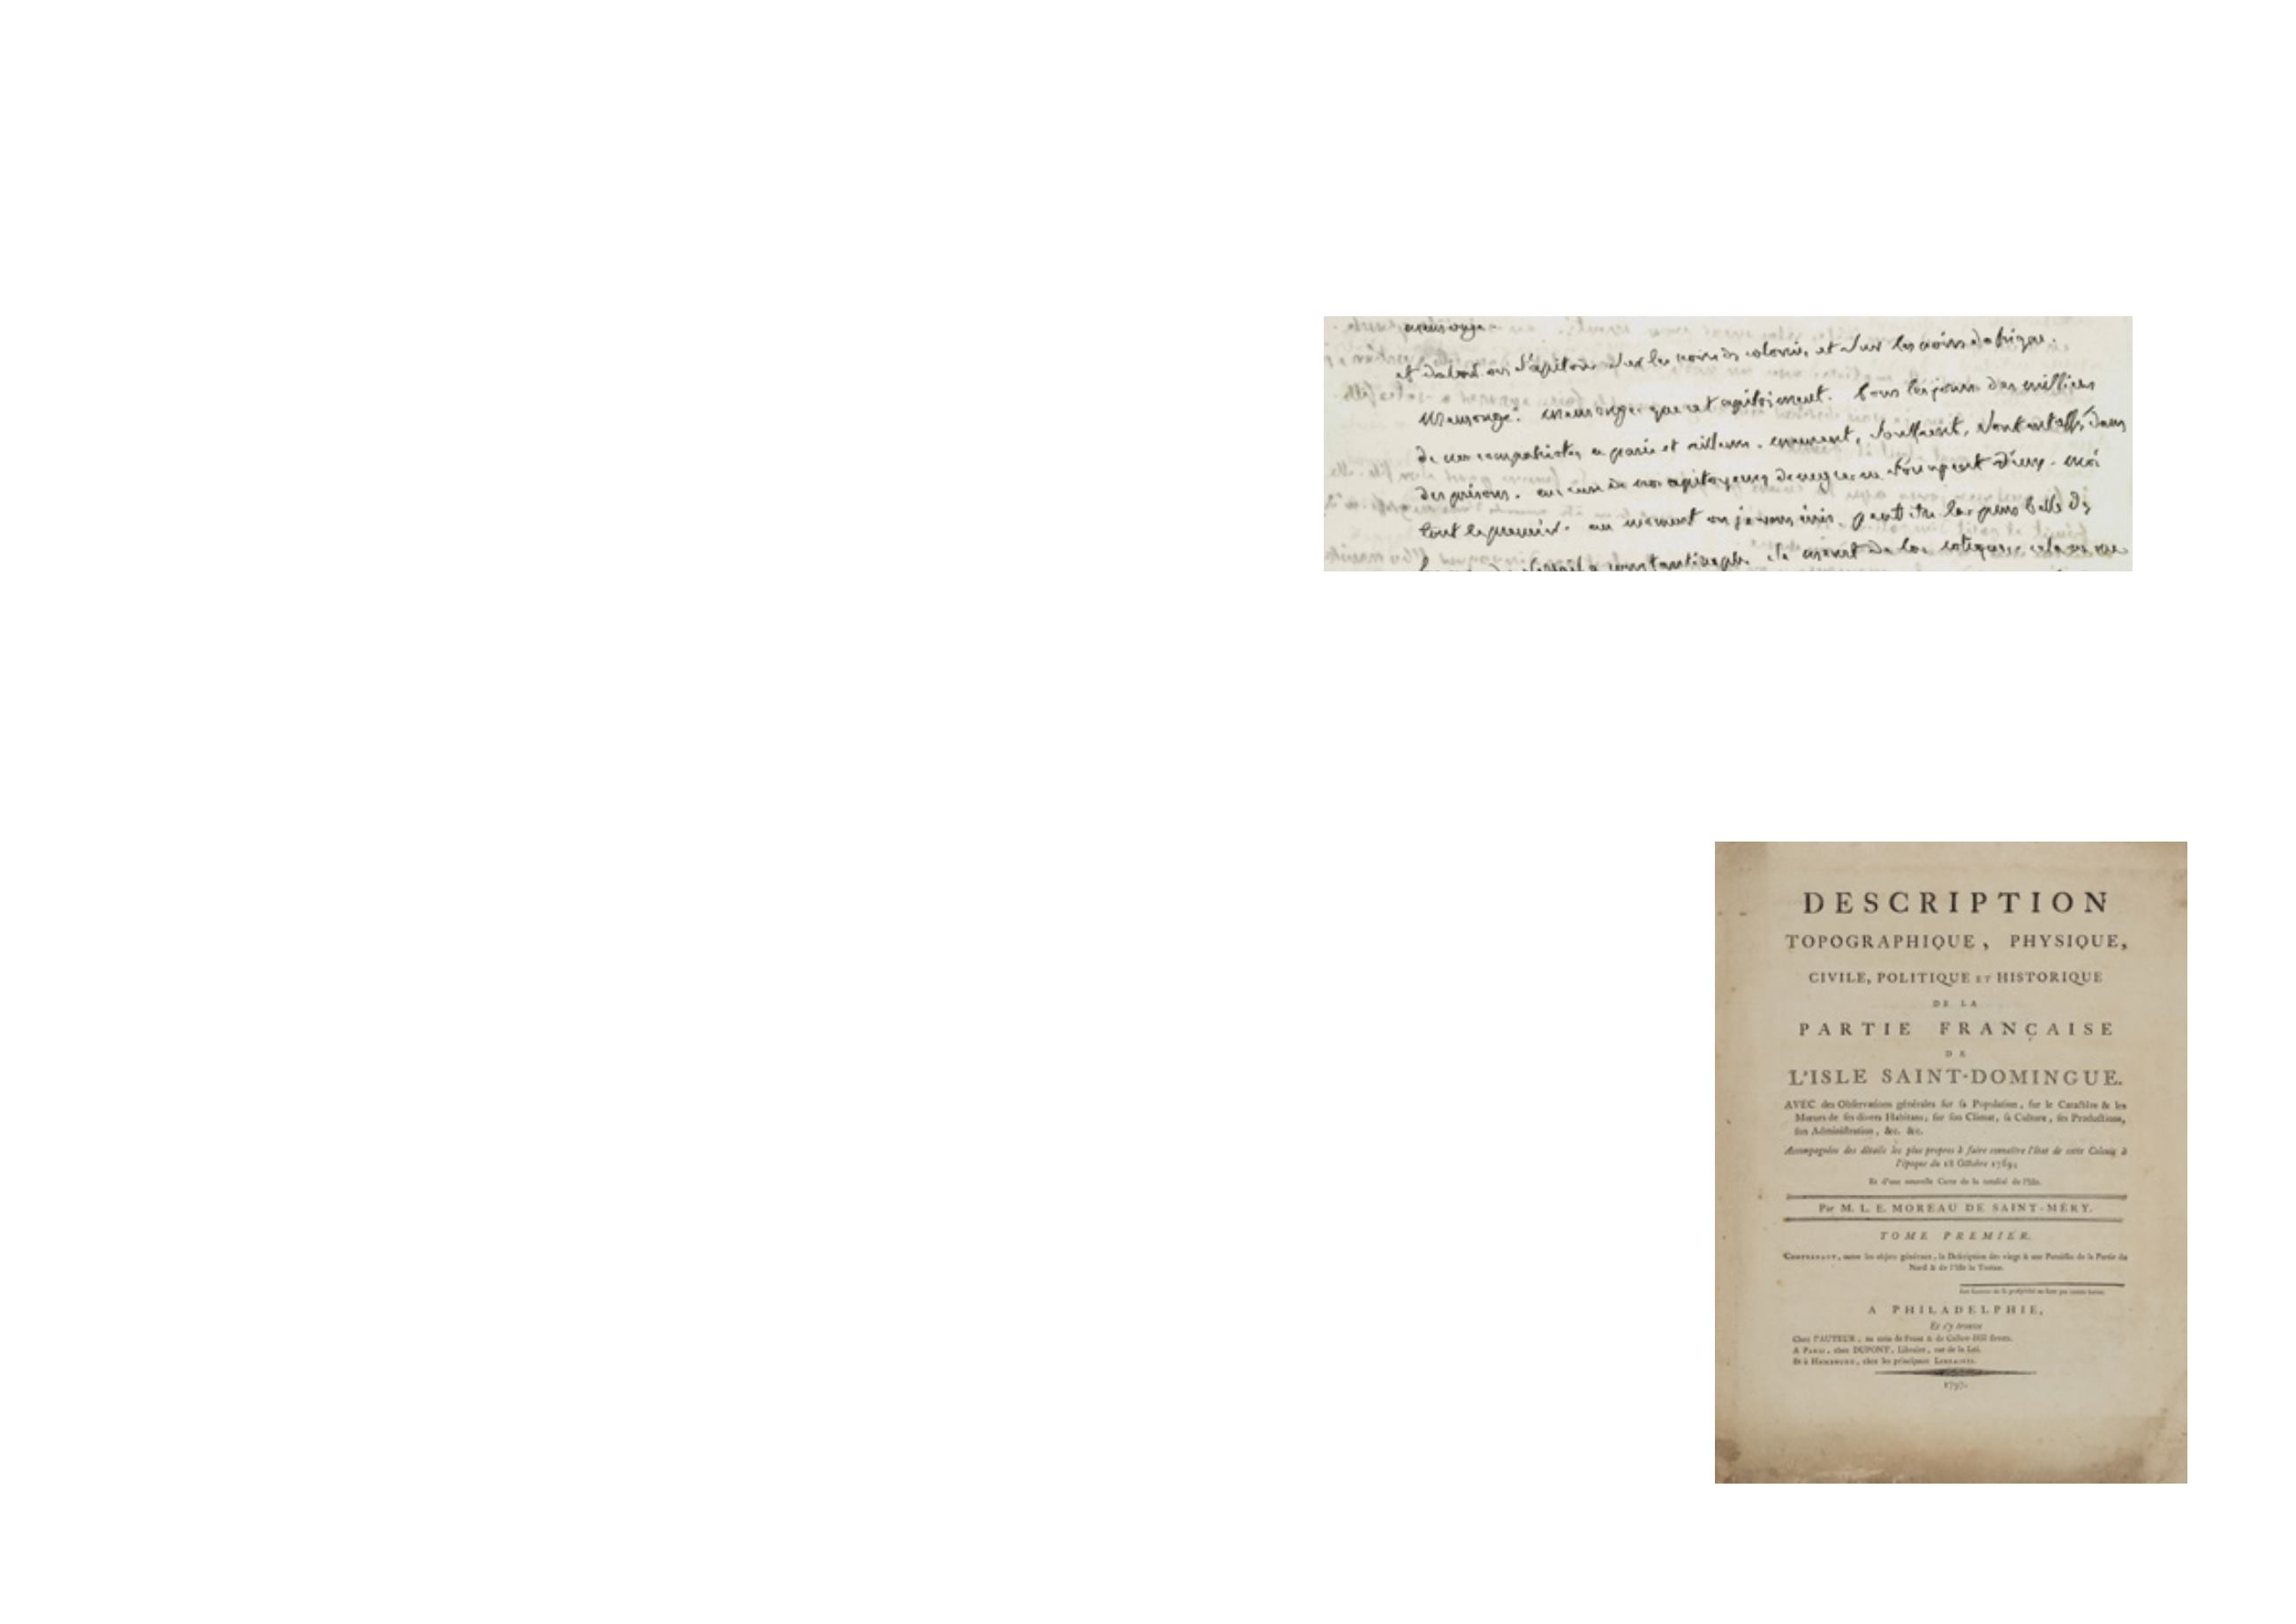 et d'abord on s'apitoie sur les noirs des colonies, et sur les noirs d'afrique.
mensonge! mensonge que cet apitoiement. tous les jours des milliers
de nos compatriotes a paris et ailleurs. meurent, souffrent, sont entassés dans
des prisons. aucun de nos apitoyeurs de negres ne s'occupent d'eux. moi
tout le premier. au moment ou je vous écris. peut être la plus belle
constantinople
DESCRIPTION
TOPOGRAPHIQUE, PHYSIQUE,
CIVILE, POLITIQUE ET HISTORIQUE
DE LA
PARTIE FRANÇAISE
DE
L'ISLE SAINT-DOMINGUE.
AVEC des Observations générales sur sa Population, sur le Caractère & les
Mœurs de ses divers Habitans, sur son Climat, sa Culture, ses Productions,
son Administration, &c. &c.
Accompagnées des détails les plus propres à faire connaître l'état de cette Colonie à
l'époque du 18 Octobre 1789;
Et d'une nouvelle Carte de la totalité de l'Isle.
Par M. L. E. MOREAU DE SAINT-MÉRY.
TOME PREMIER.
CONTENANT, outre les objets généraux, la Description des vingt & une Paroisses de la Partie du
Nord & de l'Isle la Tortue.
A PHILADELPHIE,
Et s'y trouve
Chez l'AUTEUR, au coin de Front & de Callow-Hill streets.
A PARIS, chez DUPONT, Libraire, rue de la Loi.
Et à HAMBOURG, chez les principaux LIBRAIRES.
1797.